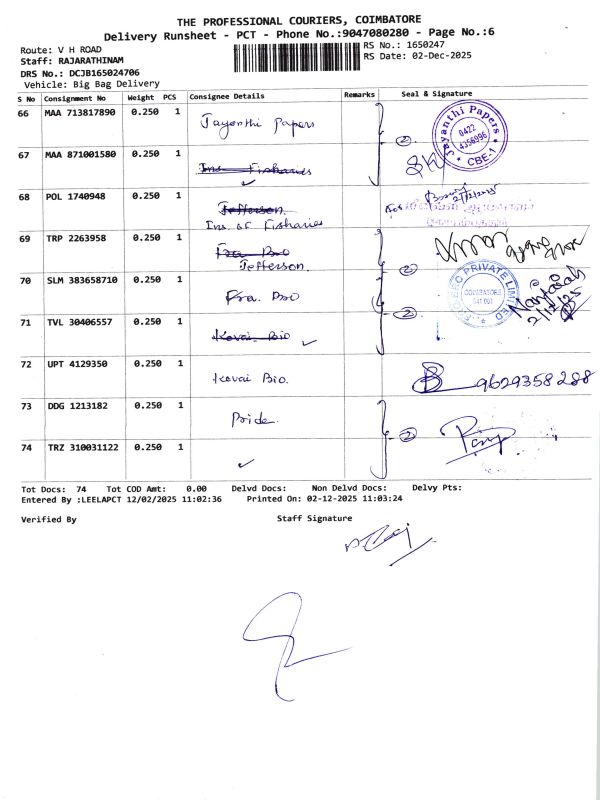 THE PROFESSIONAL COURIERS, COIMBATORE
Delivery Runsheet - PCT - Phone No.:9047080280 - Page No.:6
Route: V H ROAD
RS No.: 1650247
Staff: RAJARATHINAM
RS Date: 02-Dec-2025
DRS No.: DCJB165024706
Vehicle: Big Bag Delivery
S No Consignment No Weight PCS Consignee Details Remarks Seal & Signature
66 MAA 713817890 0.250 1 Jayanthi Papers
Jayanthi Papers
0422
4356996
* CBE-1 *
67 MAA 871001580 0.250 1 Ins. Fisharies
2
68 POL 1740948 0.250 1 Jefferson.
Ins. of Fisharies
For
2/12/2025
69 TRP 2263958 0.250 1 Fra. Bio
Jefferson.
2
70 SLM 383658710 0.250 1 Fra. Bio
PRIVATE LIMITED
COIMBATORE
2/12/25
71 TVL 30406557 0.250 1 Kovai. Bio
2
72 UPT 4129350 0.250 1 Kovai Bio.
9629358288
73 DDG 1213182 0.250 1 Pride.
2
74 TRZ 310031122 0.250 1
Tot Docs: 74 Tot COD Amt: 0.00 Delvd Docs: Non Delvd Docs: Delvy Pts:
Entered By :LEELAPCT 12/02/2025 11:02:36 Printed On: 02-12-2025 11:03:24
Verified By Staff Signature